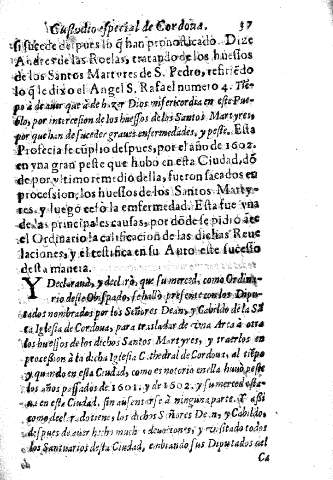 Custodio especial de Cordoua. 37
si sucede despues lo q̃ han pronosticado. Dize
Andres de las Roelas, tratando de los huessos
de los Santos Martyres de S. Pedro, refiriẽdo
lo q̃ le dixo el Angel S. Rafael numero 4. Tiẽ-
po à de auer que à de hazer Dios misericordia en este Pue-
blo, por intercesion de los huessos de los Santos Martyres,
por que han de suceder graues enfermedades, y peste. Esta
Profecia se cũplio despues, por el año de 1602.
en vna gran peste que hubo en esta Ciudad, dõ
de por vltimo remedio della, fueron sacados en
procession, los huessos de los Santos Marty-
res, y luego cesò la enfermedad. Esta fue vna
de las principales causas, por dõde se pidio ante
el Ordinario la calificacion de las dichas Reue
laciones, y el testifica en su Auto este sucesso
desta manera.
Y Declarando, y declarò, que su merced, como Ordina-
rio deste Obispado, se hallò presente con los Dipu
tados nombrados por los Señores Dean, y Cabildo de la Sã
ta Iglesia de Cordoua, para trasladar de vna Arca à otra
los huessos de los dichos Santos Martyres, y traerlos en
procession à la dicha Iglesia Cathedral de Cordoua, al tiẽpo
y quando en esta Ciudad, como es notorio en ella huuo peste
los años passados de 1601. y de 1602. y su merced esta
ua en esta Ciudad, sin ausentarse à ninguna parte. Y assi
como declarado tiene, los dichos Señores Dean, y Cabildo,
despues de auer hecho muchas deuociones, y visitado todos
los Santuarios desta Ciudad, embiando sus Diputados del
Ca